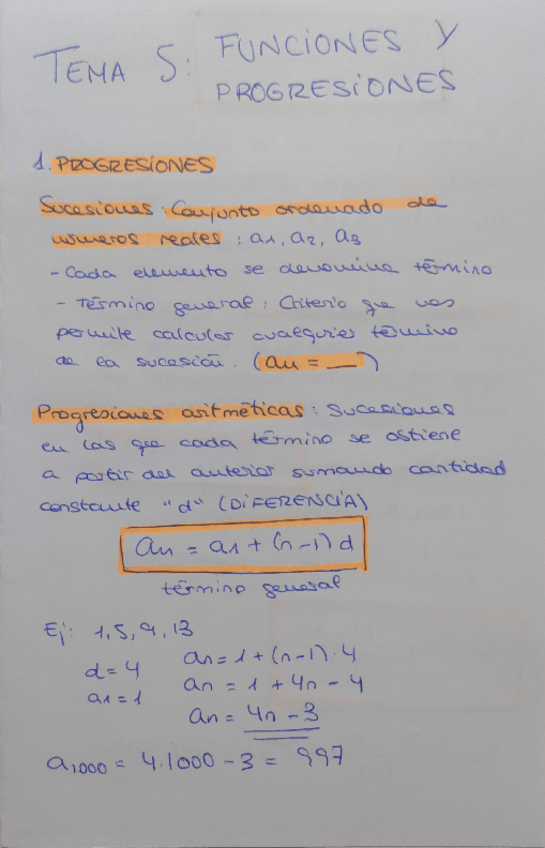 TEMA 5: FUNCIONES Y
PROGRESIONES
1. PROGRESIONES
Sucesiones: Conjunto ordenado de
números reales: a1, a2, a3
- Cada elemento se denomina término
- Término general: Criterio que nos
permite calcular cualquier término
de la sucesión. (an = __)
Progresiones aritméticas: Sucesiones
en las que cada término se obtiene
a partir del anterior sumando cantidad
constante "d" (DIFERENCIA)
an = a1 + (n-1) d
término general
Ej: 1, 5, 9, 13
d = 4 an = 1 + (n-1) · 4
a1 = 1 an = 1 + 4n - 4
an = 4n - 3
a1000 = 4·1000 - 3 = 997